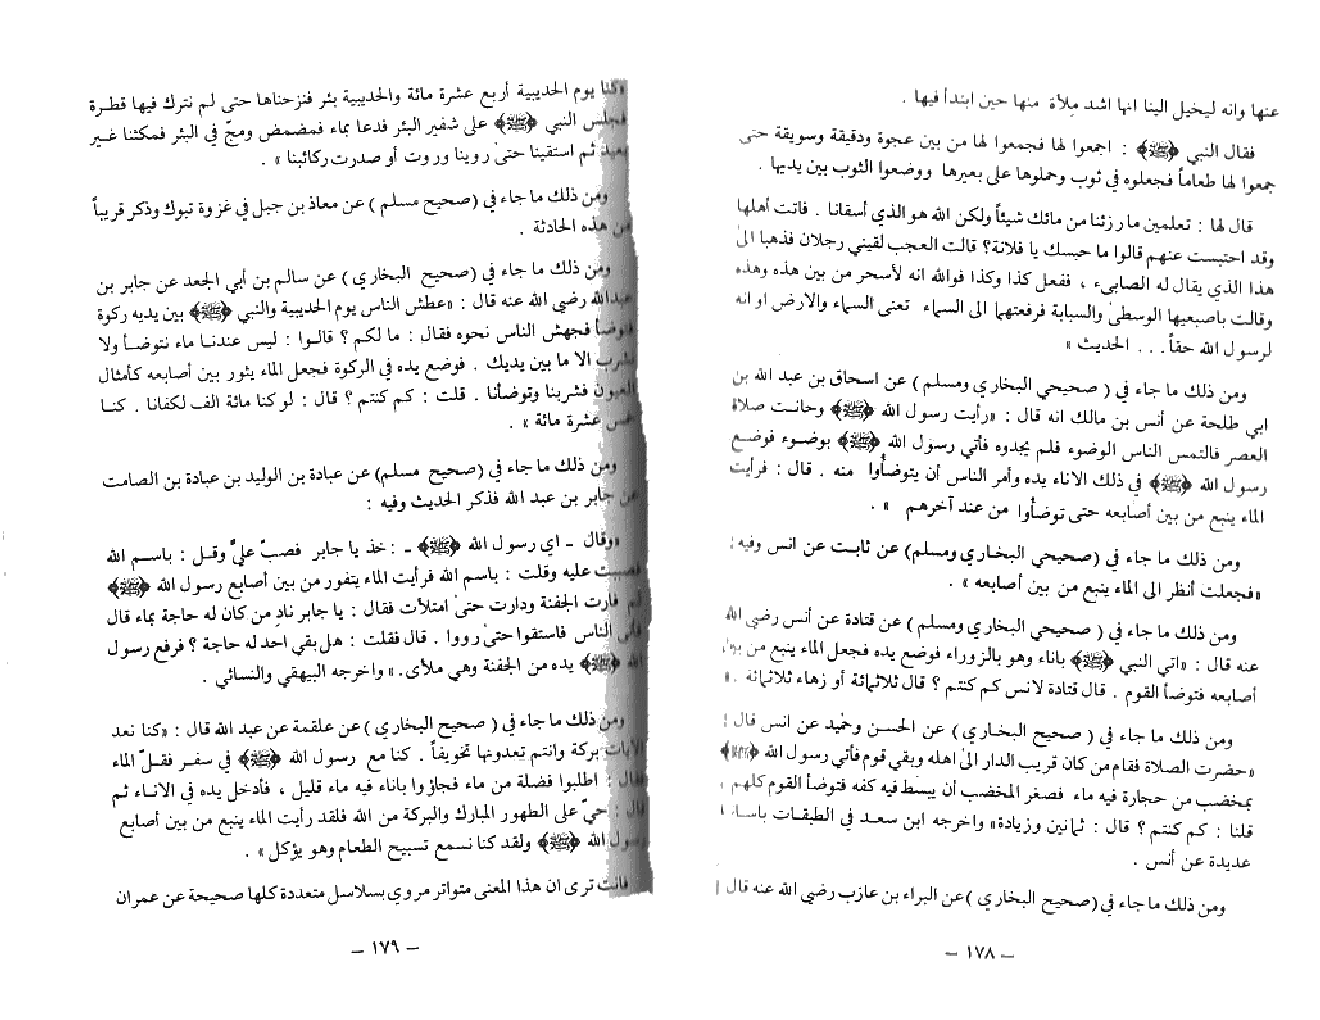 عنها وانه ليخيل الينا انها اشد ملأة منها حين ابتدأ فيها .
فقال النبي ﴿ﷺ﴾ : اجمعوا لها فجمعوا لها من بين عجوة ودقيقة وسويقة حتى
جمعوا لها طعاماً فجعلوه في ثوب وحملوها على بعيرها ووضعوا الثوب بين يديها .
قال لها : تعلمين ما رزئنا من مائك شيئاً ولكن الله هو الذي أسقانا . فاتت أهلها
وقد احتبست عنهم قالوا ما حبسك يا فلانة؟ قالت العجب لقيني رجلان فذهبا الى
هذا الذي يقال له الصابىء ، ففعل كذا وكذا فوالله انه لأسحر من بين هذه وهذه
وقالت باصبعيها الوسطى والسبابة فرفعتهما الى السماء تعنى السماء والارض او انه
لرسول الله حقاً . . . الحديث »
ومن ذلك ما جاء في ( صحيحي البخاري ومسلم ) عن اسحاق بن عبد الله بن
ابي طلحة عن أنس بن مالك انه قال : «رأيت رسول الله ﴿ﷺ﴾ وحانت صلاة
العصر فالتمس الناس الوضوء فلم يجدوه فأتي رسول الله ﴿ﷺ﴾ بوضوء فوضع
رسول الله ﴿ﷺ﴾ في ذلك الاناء يده وأمر الناس أن يتوضأوا منه . قال : فرأيت
الماء ينبع من بين أصابعه حتى توضأوا من عند آخرهم » .
ومن ذلك ما جاء في (صحيحي البخاري ومسلم) عن ثابت عن انس وفيه :
«فجعلت أنظر الى الماء ينبع من بين أصابعه » .
ومن ذلك ما جاء في ( صحيحي البخاري ومسلم ) عن قتادة عن أنس رضي الله
عنه قال : «اتي النبي ﴿ﷺ﴾ باناء وهو بالزوراء فوضع يده فجعل الماء ينبع من بين
أصابعه فتوضأ القوم . قال قتادة لانس كم كنتم ؟ قال ثلاثمائة أو زهاء ثلاثمائة . »
ومن ذلك ما جاء في ( صحيح البخاري ) عن الحسن وحميد عن انس قال :
«حضرت الصلاة فقام من كان قريب الدار الى اهله وبقي قوم فأتي رسول الله ﴿ﷺ﴾
بمخضب من حجارة فيه ماء فصغر المخضب أن يبسط فيه كفه فتوضأ القوم كلهم ،
قلنا : كم كنتم ؟ قال : ثمانين وزيادة» واخرجه ابن سعد في الطبقات باسانيد
عديدة عن أنس .
ومن ذلك ما جاء في (صحيح البخاري )عن البراء بن عازب رضي الله عنه قال :
– ١٧٨ –
وكنا يوم الحديبية أربع عشرة مائة والحديبية بئر فنزحناها حتى لم نترك فيها قطرة
فجلس النبي ﴿ﷺ﴾ على شفير البئر فدعا بماء فمضمض ومجّ في البئر فمكثنا غير
بعيد ثم استقينا حتى روينا وروت أو صدرت ركائبنا » .
ومن ذلك ما جاء في (صحيح مسلم ) عن معاذ بن جبل في غزوة تبوك وذكر قريباً
من هذه الحادثة .
ومن ذلك ما جاء في (صحيح البخاري ) عن سالم بن أبي الجعد عن جابر بن
عبدالله رضي الله عنه قال : «عطش الناس يوم الحديبية والنبي ﴿ﷺ﴾ بين يديه ركوة
فتوضأ فجهش الناس نحوه فقال : ما لكم ؟ قالوا : ليس عندنا ماء نتوضأ ولا
نشرب الا ما بين يديك . فوضع يده في الركوة فجعل الماء يثور بين أصابعه كأمثال
العيون فشربنا وتوضأنا . قلت : كم كنتم ؟ قال : لو كنا مائة الف لكفانا . كنا
خمس عشرة مائة » .
ومن ذلك ما جاء في (صحيح مسلم) عن عبادة بن الوليد بن عبادة بن الصامت
عن جابر بن عبد الله فذكر الحديث وفيه :
«وقال – اي رسول الله ﴿ﷺ﴾ – : خذ يا جابر فصبّ عليّ وقل : باسم الله
فصببت عليه وقلت : باسم الله فرأيت الماء يتفور من بين أصابع رسول الله ﴿ﷺ﴾
ثم فارت الجفنة ودارت حتى امتلأت فقال : يا جابر نادِ من كان له حاجة بماء قال
فأتى الناس فاستقوا حتى رووا . قال فقلت : هل بقي احد له حاجة ؟ فرفع رسول
الله ﴿ﷺ﴾ يده من الجفنة وهي ملأى . » واخرجه البيهقي والنسائي .
ومن ذلك ما جاء في ( صحيح البخاري ) عن علقمة عن عبد الله قال : «كنا نعد
الآيات بركة وانتم تعدونها تخويفاً . كنا مع رسول الله ﴿ﷺ﴾ في سفر فقلّ الماء
فقال : اطلبوا فضلة من ماء فجاؤوا باناء فيه ماء قليل ، فأدخل يده في الاناء ثم
قال : حيّ على الطهور المبارك والبركة من الله فلقد رأيت الماء ينبع من بين أصابع
رسول الله ﴿ﷺ﴾ ولقد كنا نسمع تسبيح الطعام وهو يؤكل» .
فانت ترى ان هذا المعنى متواتر مروي بسلاسل متعددة كلها صحيحة عن عمران
– ١٧٩ –